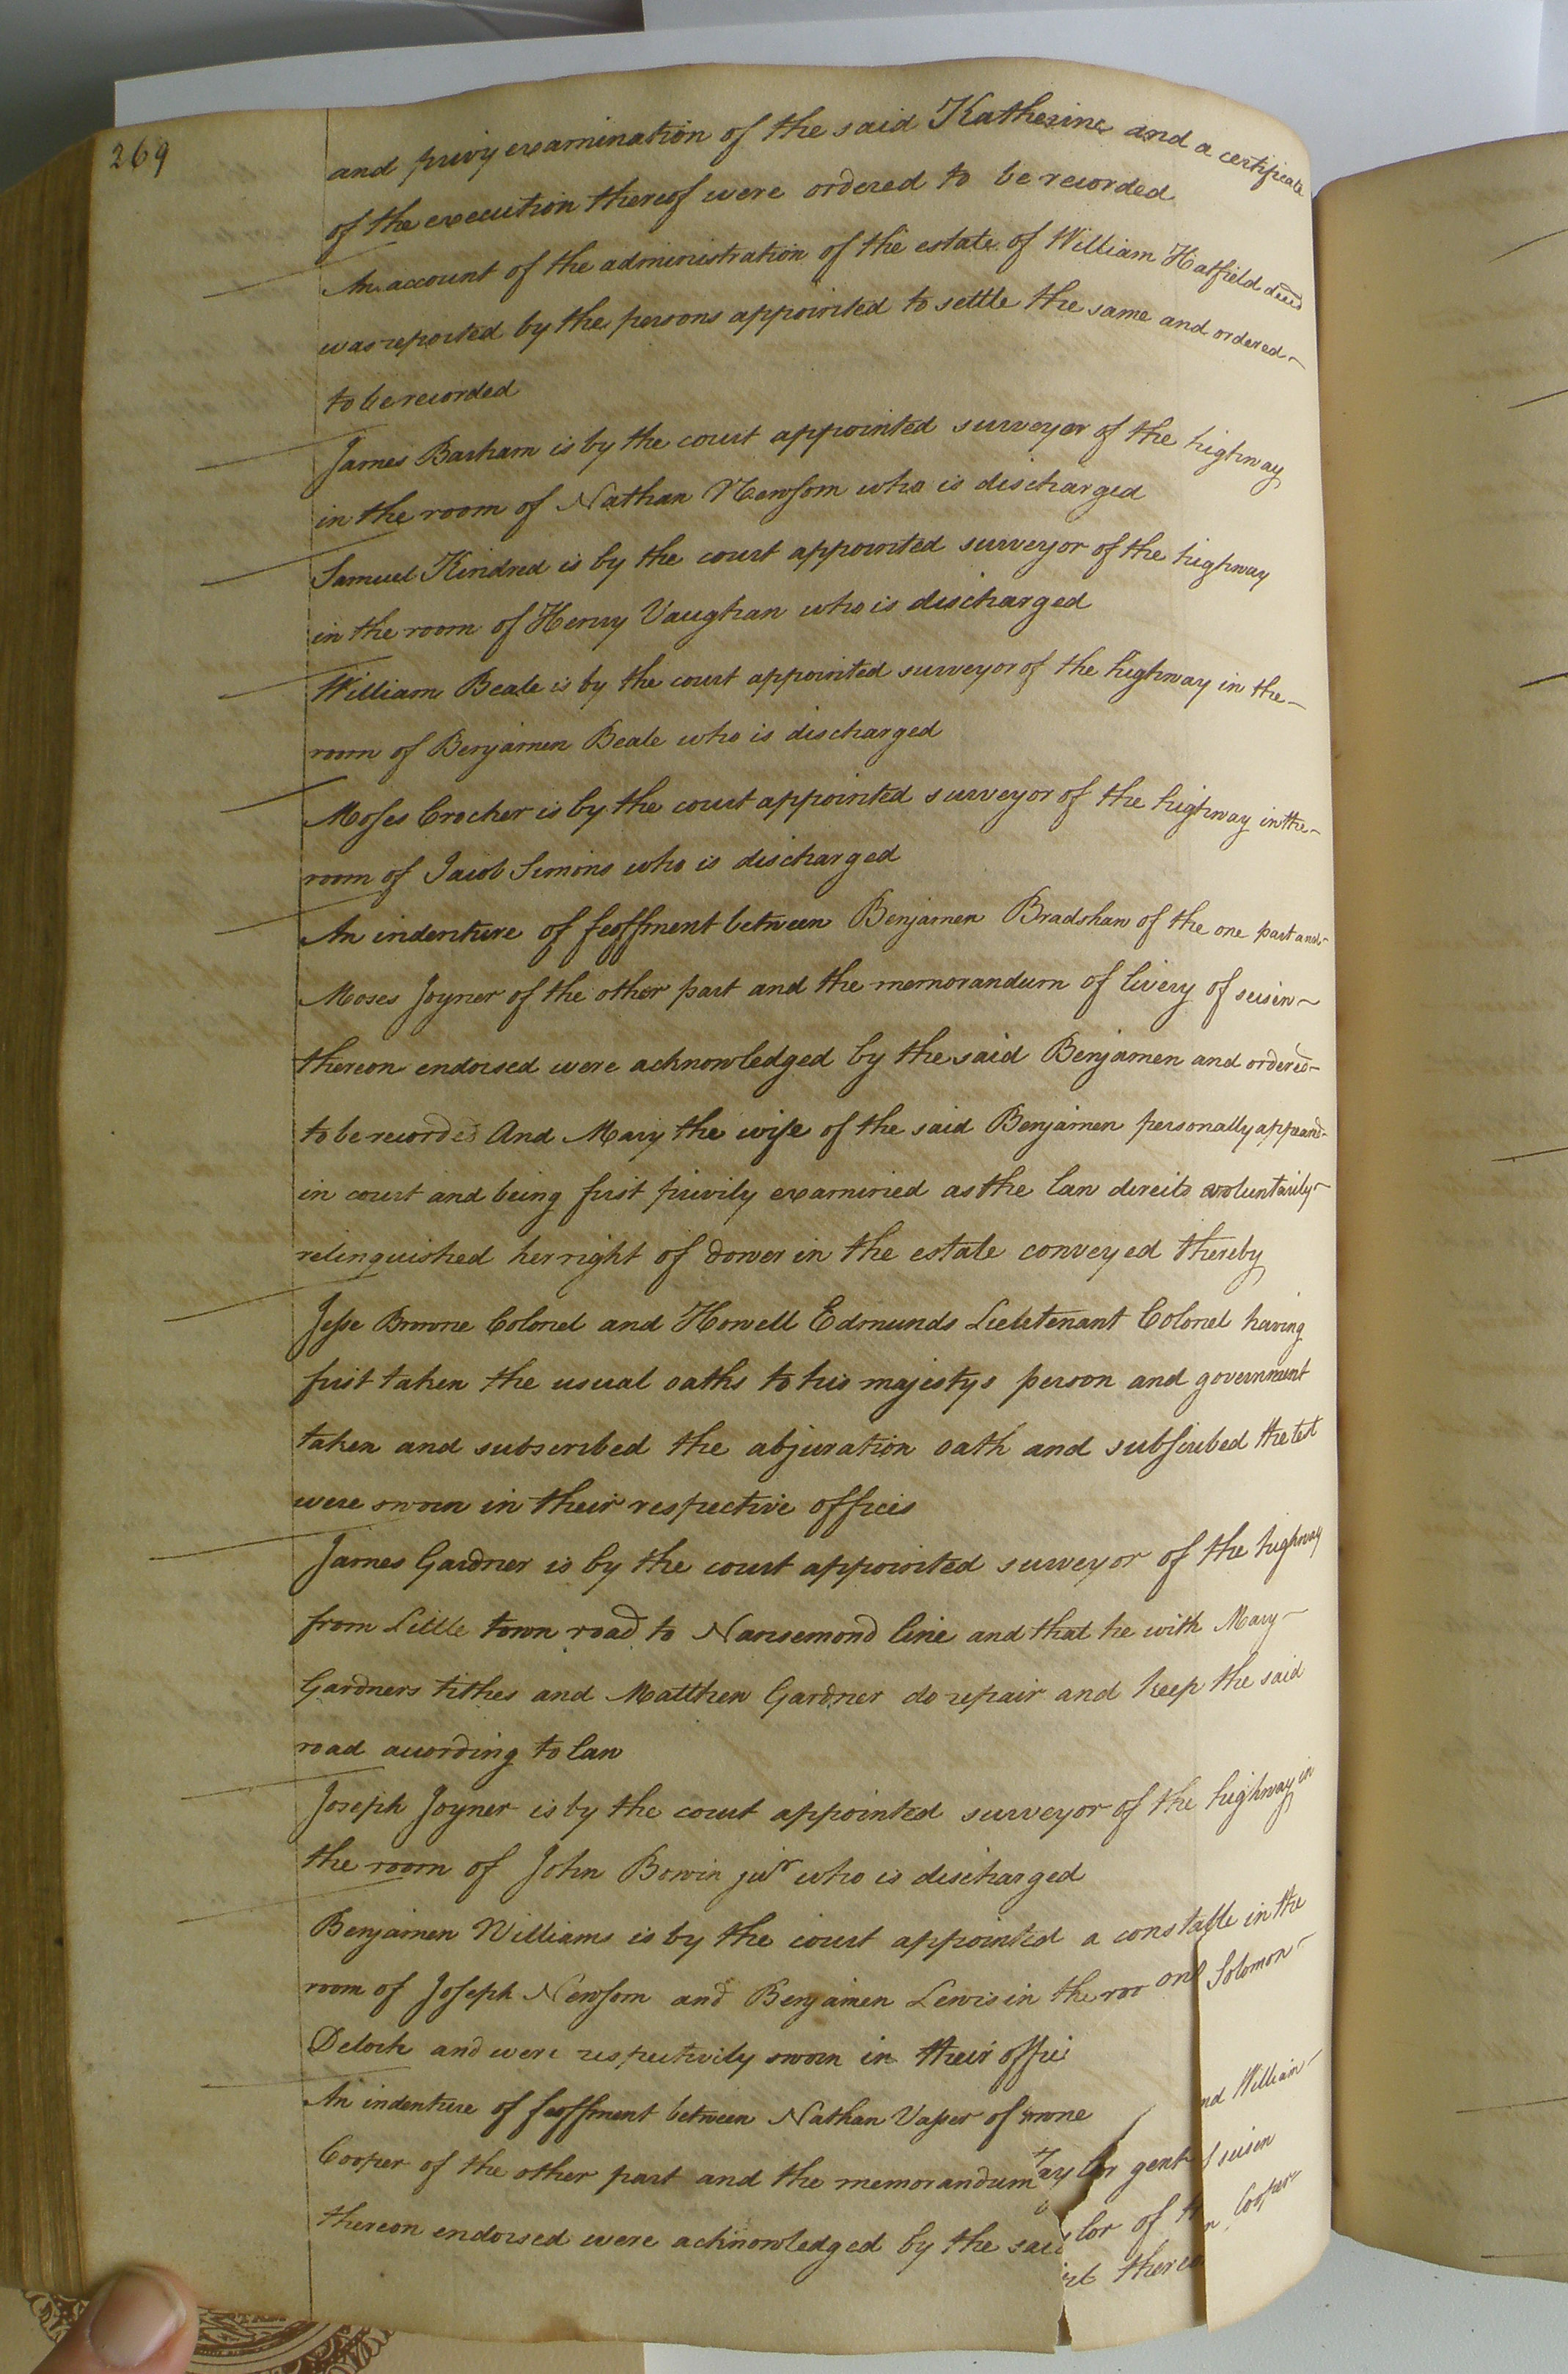 269
and privy examination of the said Katherine and a certificate
of the execution thereof were ordered to be recorded
An account of the administration of the estate of William Hatfield deced
was reported by the persons appointed to settle the same and ordered
to be recorded
James Barham is by the court appointed surveyor of the highway
in the room of Nathan Newsom who is discharged
Samuel Kindred is by the court appointed surveyor of the highway
in the room of Henry Vaughan who is discharged
William Beale is by the court appointed surveyor of the highway in the
room of Benjamen Beale who is discharged
Moses Crocker is by the court appointed surveyor of the highway in the
room of Jacob Simons who is discharged
An indenture of feoffment between Benjamen Bradshaw of the one part and
Moses Joyner of the other part and the memorandum of livery of seisen
thereon endorsed were acknowledged by the said Benjamen and ordered
to be recorded And Mary the wife of the said Benjamen personally appeared
in court and being first privily examined as the law directs voluntarily
relinquished her right of dower in the estate conveyed thereby
Jesse Browne Colonel and Howell Edmunds Lieutenant Colonel having
first taken the usual oaths to his majestys person and government
taken and subscribed the abjuration oath and subscribed the test
were sworn in their respective offices
James Gardner is by the court appointed surveyor of the highway
from Little town road to Nansemond line and that he with Mary
Gardners tithes and Matthew Gardner do repair and keep the said
road according to law
Joseph Joyner is by the court appointed surveyor of the highway in
the room of John Bowin junr who is discharged
Benjamen Williams is by the court appointed a constable in the
room of Joseph Newsom and Benjamen Lewis in the roo Solomon
Deloch and were respectively sworn in their offic
An indenture of feoffment between Nathan Vasser of nd William
Cooper of the other part and the memorandum seisen
thereon endorsed were acknowledged by the said Cooper
gent
lor of th